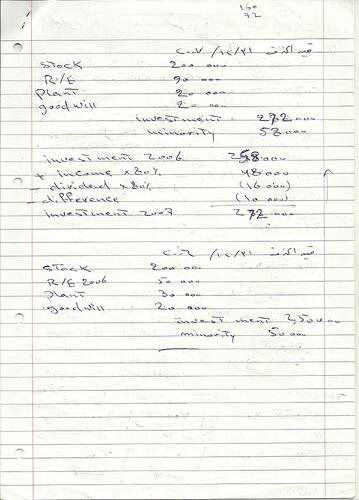 160
72
قيد ١٢/٣١/
Stock 200 000
R/E 90 000
Plant 20 000
goodwill 20 000
investment 272 000
minority 58 000
investment 2006
+ income x 80% 48.000
- dividend x 80% (16 000)
- difference (10 000)
investment 2007 272 000
قيد ١٢/٣١/
Stock 200 000
R/E 2006 50 000
Plant 30 000
goodwill 20 000
investment 250000
minority 50 000